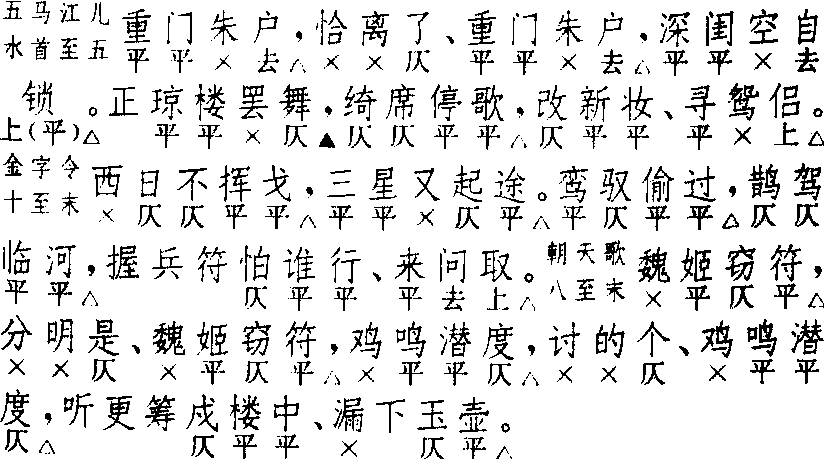 五马江儿 重门朱户，恰离了、重门朱户，深闺空自
水首至五 平平×去△××仄平平×去△平平×去
锁。正琼楼罢舞，绮席停歌，改新妆、寻鸳侣。
上(平)△平平×仄▲仄仄平平△仄平平平×上△
金字令 西日不挥戈，三星又起途。鸾驭偷过，鹊驾
十至末 ×仄仄平平△平平×仄平△平仄平平△仄仄
临河，握兵符怕谁行、来问取。朝天歌 魏姬窃符，
平平△仄平平平去上△八至末 ×平仄平△
分明是、魏姬窃符，鸡鸣潜度，讨的个、鸡鸣潜
××仄×平仄平△×平平仄△××仄×平平
度，听更筹戍楼中、漏下玉壶。
仄△仄平平×仄平△